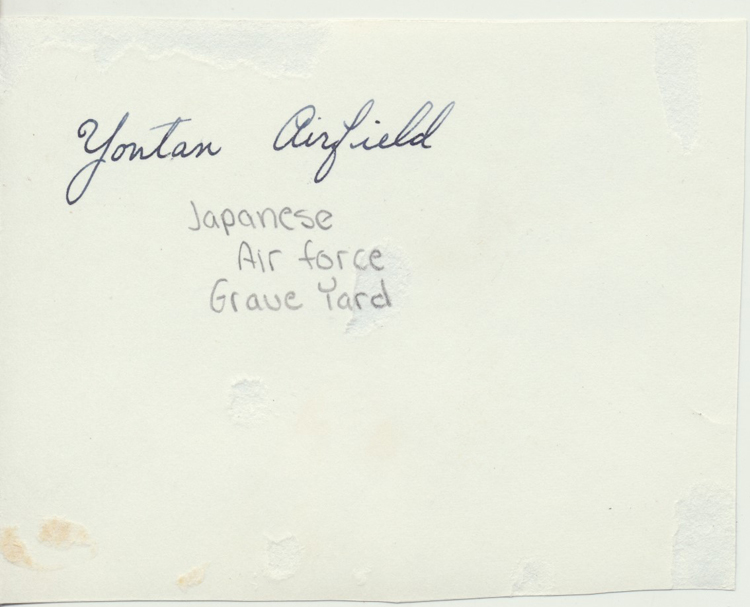 Yontan Airfield
Japanese
Air force
Grave Yard